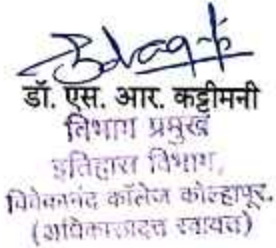 डॉ. एस. आर. कट्टीमनी
विभाग प्रमुख
इतिहास विभाग,
विवेकानंद कॉलेज कोल्हापूर.
(अधिकारप्रदत्त स्वायत्त)